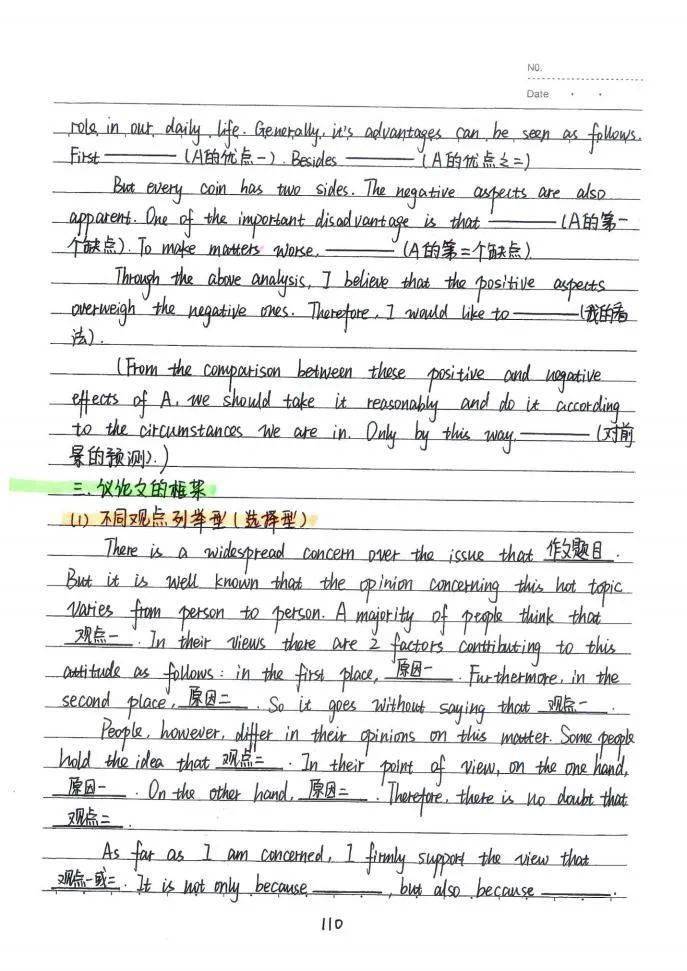 NO.
Date
role in our daily life. Generally, it's advantages can be seen as follows.
First ———— (A的优点一). Besides ———— (A的优点之二)
But every coin has two sides. The negative aspects are also
apparent. One of the important disadvantage is that ———— (A的第一
个缺点). To make matters worse, ———— (A的第二个缺点)
Through the above analysis, I believe that the positive aspects
overweigh the negative ones. Therefore, I would like to ———— (我的看
法).
(From the comparison between these positive and negative
effects of A, we should take it reasonably and do it according
to the circumstances we are in. Only by this way, ———— (对前
景的预测).)
三. 议论文的框架
(1) 不同观点列举型(选择型)
There is a widespread concern over the issue that 作文题目.
But it is well known that the opinion concerning this hot topic
varies from person to person. A majority of people think that
观点一. In their views there are 2 factors contributing to this
attitude as follows: in the first place, 原因一. Furthermore, in the
second place, 原因二. So it goes without saying that 观点一.
People, however, differ in their opinions on this matter. Some people
hold the idea that 观点二. In their point of view, on the one hand,
原因一. On the other hand, 原因二. Therefore, there is no doubt that
观点二.
As far as I am concerned, I firmly support the view that
观点一或二. It is not only because ————, but also because ————.
110